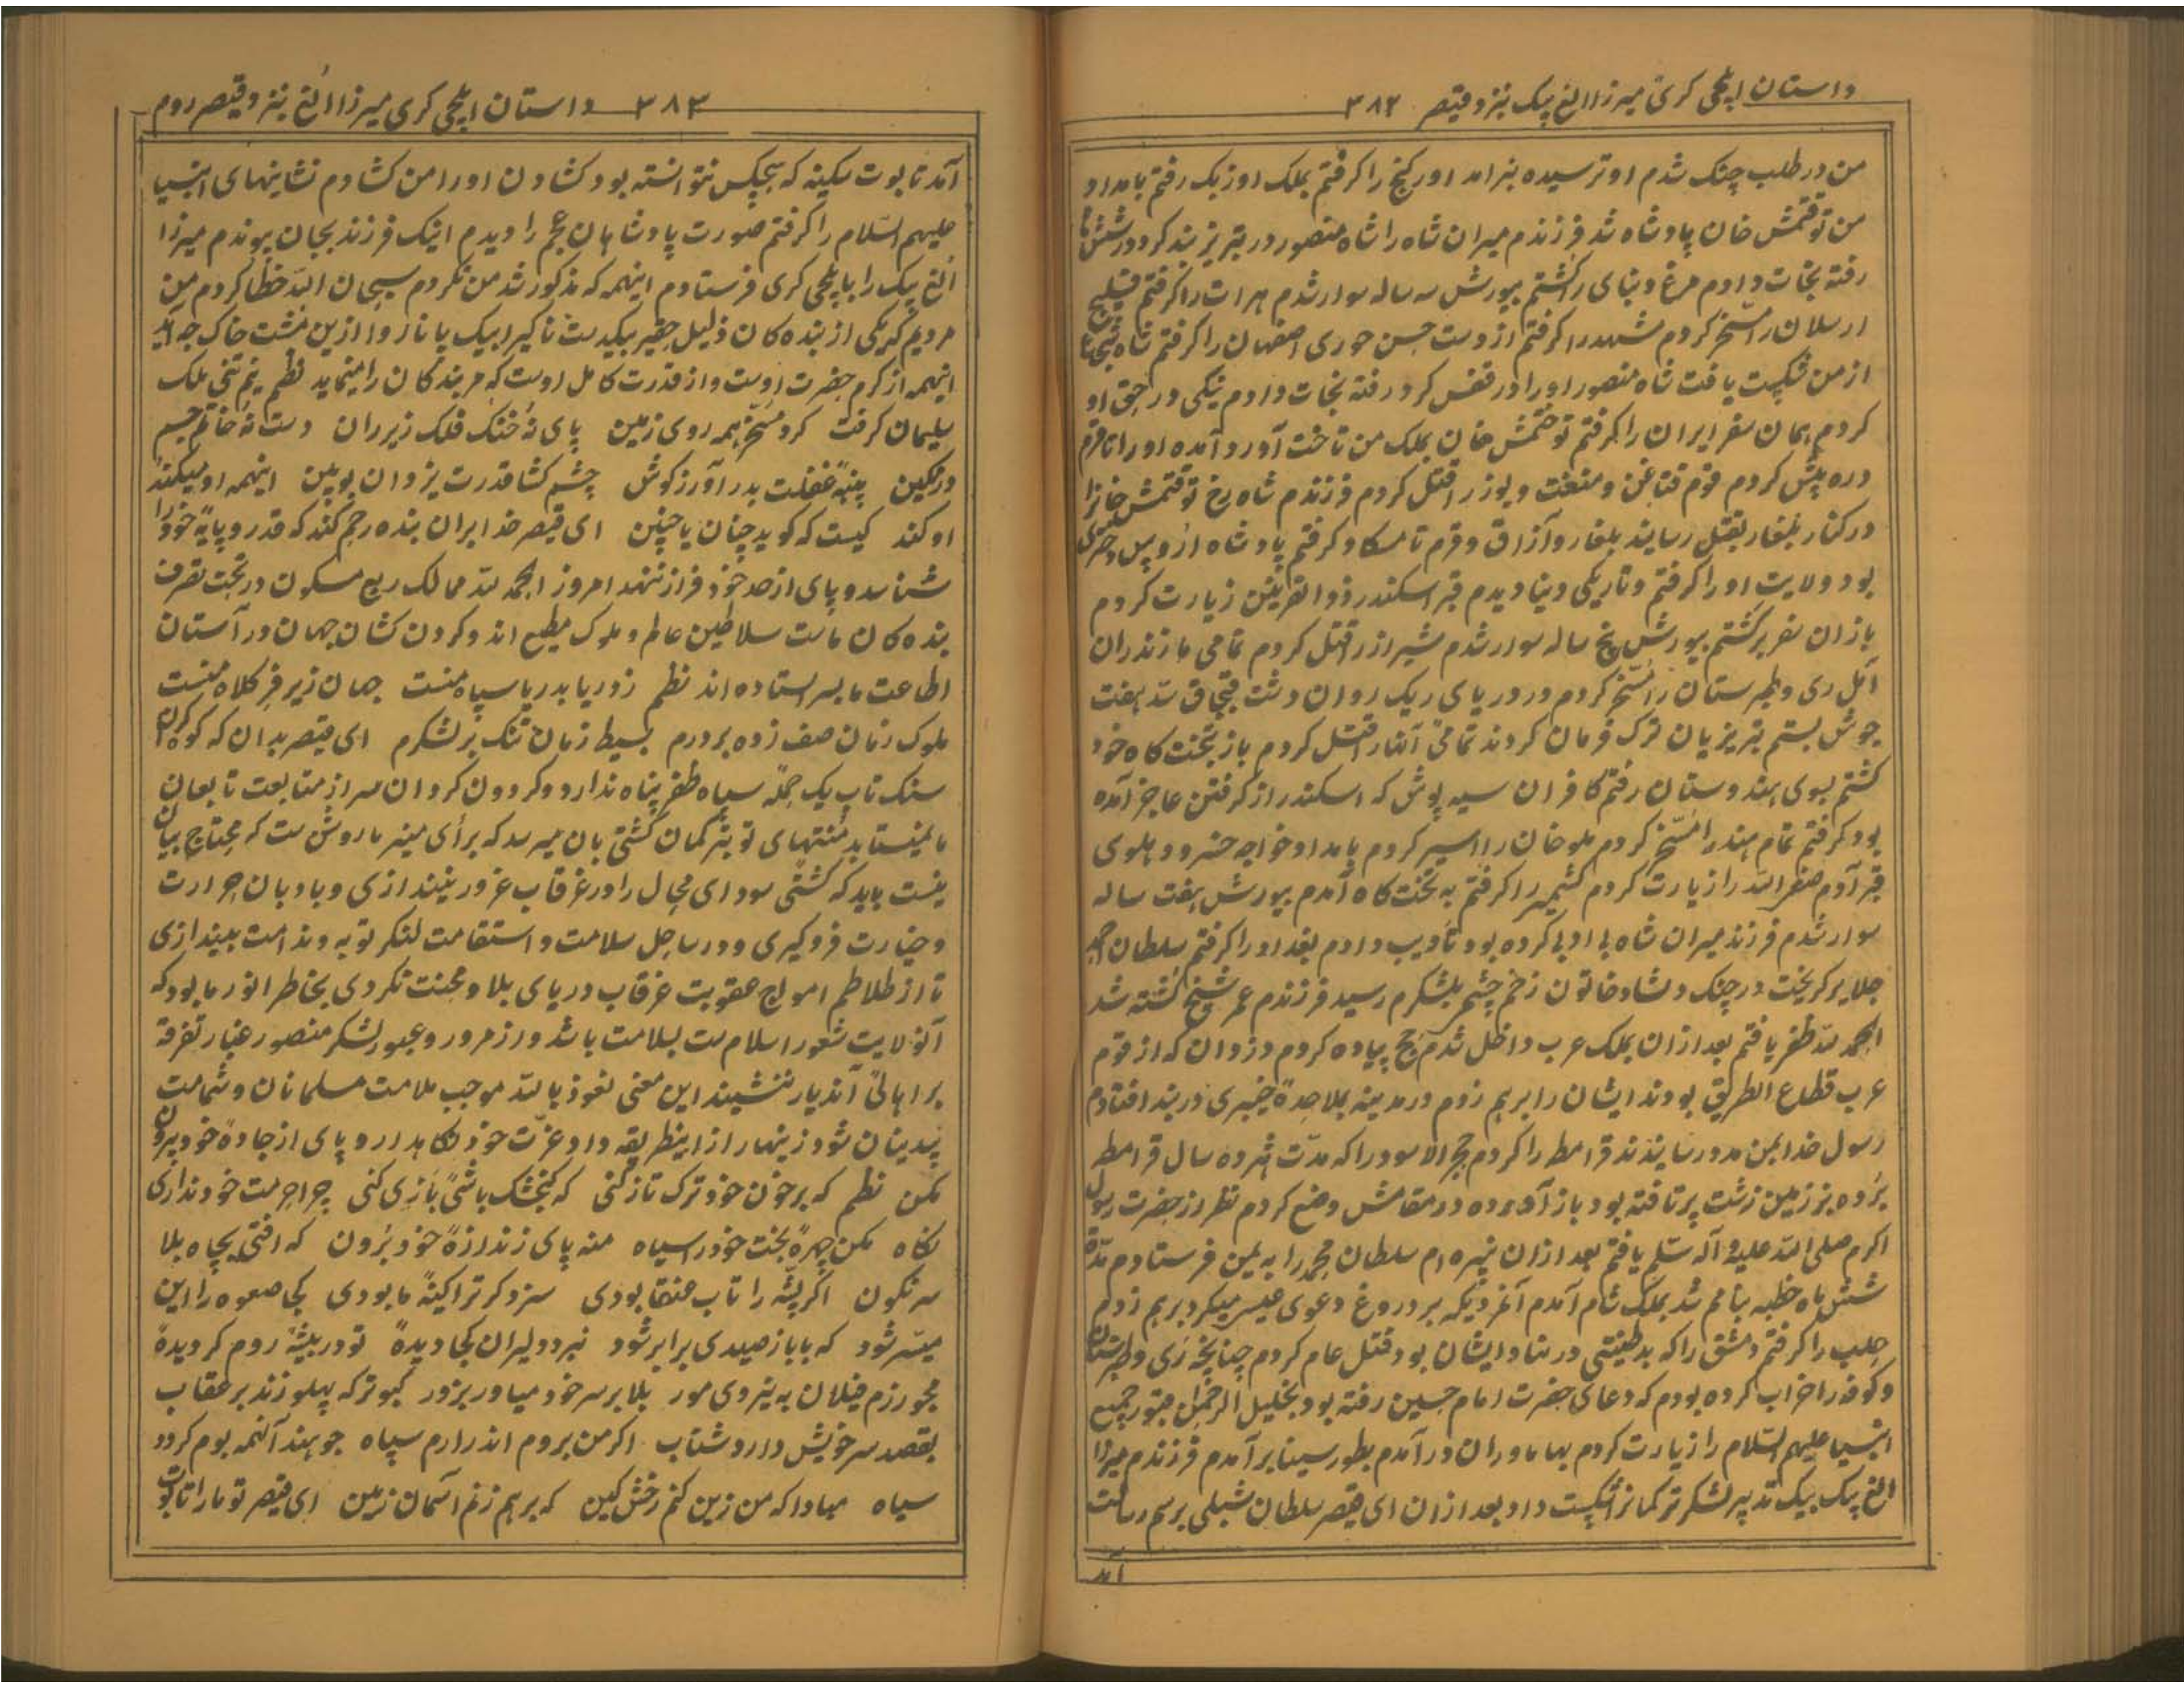 داستان ایلچی کری میرزا الغ بیک بنزد قیصر ۳۸۲
من در طلب جنک شدم او ترسیده بنرامد اورکنج را کرفتم بملک اوزبک رفتم بامداد
من توقتمش خان پادشاه شد فرزندم میران شاه را شاه منصور در تبریز بند کرد در شش
رفته نجات دادم مرغ دنبای را کشتم بیورش سه ساله سوار شدم هرات را کرفتم قیلیچ
ارسلان را مسخر کردم مشهد را کرفتم از دست حسن جوری اصفهان را کرفتم شاه شجاع
از من شکست یافت شاه منصور او را در قفس کرد رفته نجات دادم نیکی در حق او
کردم همان سفر ایران را کرفتم توختمش خان بملک من تاخت آورد آمده او را تا قرم
دره پیش کردم قوم قتاغن و منغت و یوز را قتل کردم فرزندم شاه رخ توقتمش خانرا
در کنار بلغار بقتل رسانید بلغار و آزاق و قرم تا مسکاو کرفتم پادشاه اروس
بود ولایت او را کرفتم و تاریکی دنیا دیدم قبر اسکندر ذوالقرنین زیارت کردم
بازان سفر برکشتم بیورش پنج ساله سوار شدم شیراز را قتل کردم تمامی مازندران
آمل ری و طبرستان را مسخر کردم و در دریای ریک روان دشت قبچاق سد هفت
جوش بستم تبریزیان ترک فرمان کردند تمامی آنها را قتل کردم باز بتخت کاه خود
کشتم بسوی هندوستان رفتم کافران سیه پوش که اسکندر از کرفتن عاجز آمده
بود کرفتم تمام هند را مسخر کردم ملو خان را اسیر کردم بامداد خواجه خسرو دهلوی
قبر آدم صفی الله را زیارت کردم کشمیر را کرفتم به تخت کاه آمدم بیورش هفت ساله
سوار شدم فرزند میران شاه بی ادبی کرده بود تادیب دادم بغداد را کرفتم سلطان احمد
جلایر کریخت در جنک دلشاد خاتون زخم چشم بلشکرم رسید فرزندم عمر شیخ کشته شد
الحمد لله ظفر یافتم بعد ازان بملک عرب داخل شدم حج پیاده کردم دزدان که از قوم
عرب قطاع الطریق بودند ایشان را برهم زدم در مدینه بملاحدهٔ خیبری در بند افتادم
رسول خدا بمن مدد رسانیدند قرامطه را کردم حجر الاسود را که مدت هژده سال قرامطه
برده بزمین زشت پرتافته بود باز آورده در مقامش وضع کردم نظر از حضرت رسول
اکرم صلی الله علیه و آله سلم یافتم بعد ازان نبیره ام سلطان محمد را به یمن فرستادم مدة
شش ماه خطبه بنامم شد بملک شام آمدم آنمردیکه بر دروغ دعوی عیسی میکرد برهم زدم
حلب را کرفتم دمشق را که بدطینتی در بنیاد ایشان بود قتل عام کردم چنانچه ری و طبرستان
و کوفه را خراب کرده بودم که دعای حضرت امام حسین رفته بود بخلیل الرحمن قبور جمیع
انبیا علیهم السلام را زیارت کردم بهاماوران در آمدم بطور سینا برآمدم فرزندم میرزا
الغ بیک بیک تدبیر لشکر ترکمانرا شکست داد بعد ازان ای قیصر سلطان شبلی برسم رسالت
آمد
۳۸۳ داستان ایلچی کری میرزا الغ بنزد قیصر روم
آمد تابوت سکینه که هیچکس نتوانسته بود کشادن او را من کشادم نشانیهای انبیا
علیهم السلام را کرفتم صورت پادشاهان عجم را دیدم اینک فرزند بجان پیوندم میرزا
الغ بیک را بایلچی کری فرستادم اینهمه که مذکور شد من نکردم سبحان الله خطا کردم من
مردیم کریکی از بنده کان ذلیل حقیر بیکدست ناکیرا بیک پا ناروا ازین مشت خاک چه آید
اینهمه از کرم حضرت اوست و از قدرت کامل اوست که مر بندکان را مینماید نظم نیم تنی ملک
سلیمان کرفت کرد مسخر همه روی زمین پای نه خنک فلک زیر ران دست نه خاتم جسم
در نکین پنبهٔ غفلت بدر آور ز کوش چشم کشا قدرت یزدان ببین اینهمه او میکند
او کند کیست که کوید چنان یا چنین ای قیصر خدا بران بنده رحم کند که قدر و پایهٔ خود را
شناسد و پای از حد خود فراز ننهد امروز الحمد لله ممالک ربع مسکون در تحت تصرف
بنده کان ماست سلاطین عالم و ملوک مطیع اند و کردن کشان جهان در آستان
اطاعت ما بسر استاده اند نظم ز دریا بدریا سپاه منست جهان زیر فر کلاه منست
ملوک زمان صف زده بر درم بسیط زمان تنک بر لشکرم ای قیصر بدان که کوه کران
سنک تاب یک حملهٔ سپاه ظفر پناه ندارد و کردون کردان سر از متابعت تابعان
ما نمیتابد منتهای تو بترکمان کشتی بان میرسد که برأی منیر ما روشن ست که محتاج بیان
نیست باید که کشتی سودای مجال را در غرقاب غرور نیندازی و بادبان جرارت
و جسارت فروکیری و در ساحل سلامت و استقامت لنکر توبه و ندامت بیندازی
تا از طلاطم امواج عقوبت غرقاب دریای بلا و محنت نکردی بخاطر انور ما بود که
آنولایت ثغور اسلام ست بسلامت باشد و از مرور و عبور لشکر منصور غبار تفرقه
بر اهالی آندیار ننشیند این معنی نعوذ بالله موجب ملامت مسلمانان و شماتت
بیدینان شود زینهار از اینطریقه داد عزت خود نکاهدار و پای از جادهٔ خود بیرون
مکن نظم که بر خون خود ترک تازکنی که کنجشک باشی بازی کنی چرا حرمت خود نداری
نکاه مکن چهرهٔ بخت خود را سیاه منه پای ز اندازهٔ خود برون که افتی بچاه بلا
سرنکون اکر پشه را تاب عنقا بودی سزد کر ترا کینهٔ ما بودی کجا صعوه را این
میسر شود که با باز صیدی برابر شود نبرد دلیران کجا دیدهٔ تو در بیشهٔ روم کردیدهٔ
مجو رزم فیلان به نیروی مور بلا بر سر خود میاور بزور کبوتر که پهلو زند بر عقاب
بقصد سر خویش دارد شتاب اکر من بروم اندرارم سپاه چو هند آنهمه بوم کردد
سیاه مبادا که من زین کنم رخش کین که برهم زنم آسمان زمین ای قیصر تو ما را تابوت